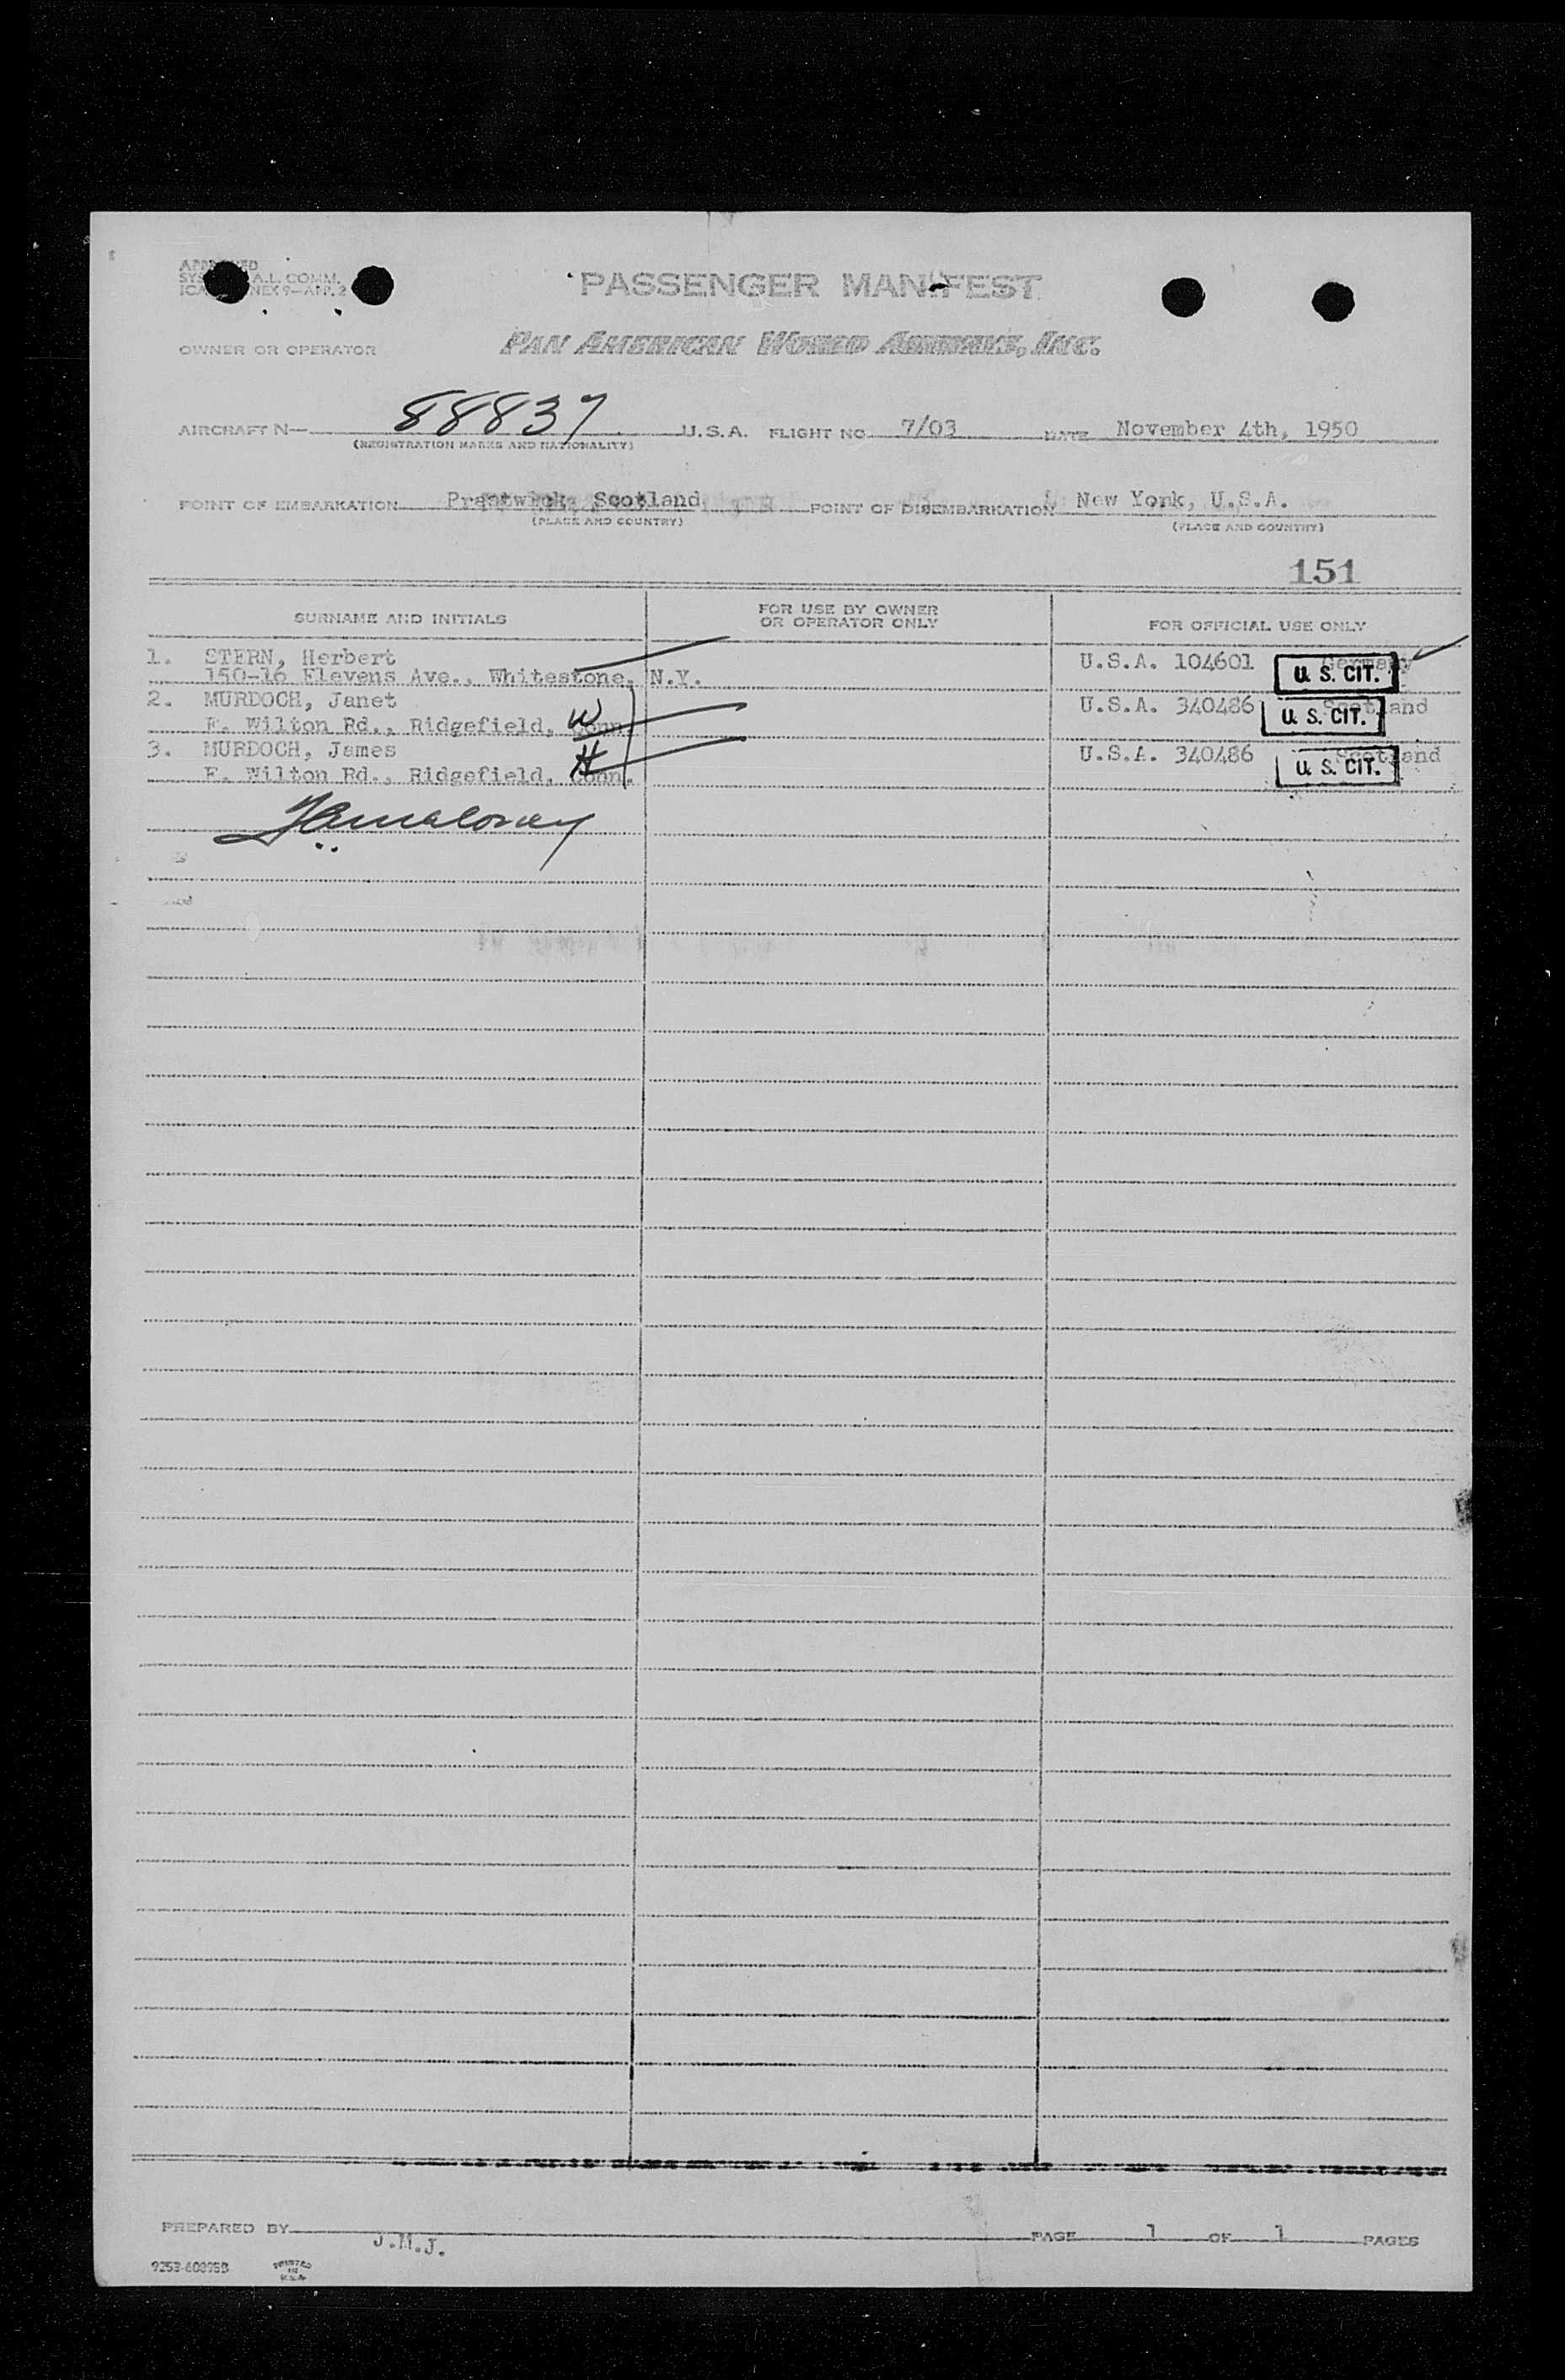 PASSENGER MANIFEST
OWNER OR OPERATOR PAN AMERICAN WORLD AIRWAYS, INC.
AIRCRAFT N— 88837 U.S.A. FLIGHT NO. 7/03 DATE November 4th, 1950
(REGISTRATION MARKS AND NATIONALITY)
POINT OF EMBARKATION Prestwick, Scotland POINT OF DISEMBARKATION New York, U.S.A.
(PLACE AND COUNTRY) (PLACE AND COUNTRY)
151
SURNAME AND INITIALS FOR USE BY OWNER OR OPERATOR ONLY FOR OFFICIAL USE ONLY
1. STERN, Herbert U.S.A. 104601 Germany
150-16 Elevens Ave., Whitestone, N.Y. U. S. CIT.
2. MURDOCH, Janet U.S.A. 340486 Scotland
E. Wilton Rd., Ridgefield, Conn. W U. S. CIT.
3. MURDOCH, James U.S.A. 340486 Scotland
E. Wilton Rd., Ridgefield, Conn. H U. S. CIT.
PREPARED BY J.M.J. PAGE 1 OF 1 PAGES
PRINTED
IN
U.S.A.